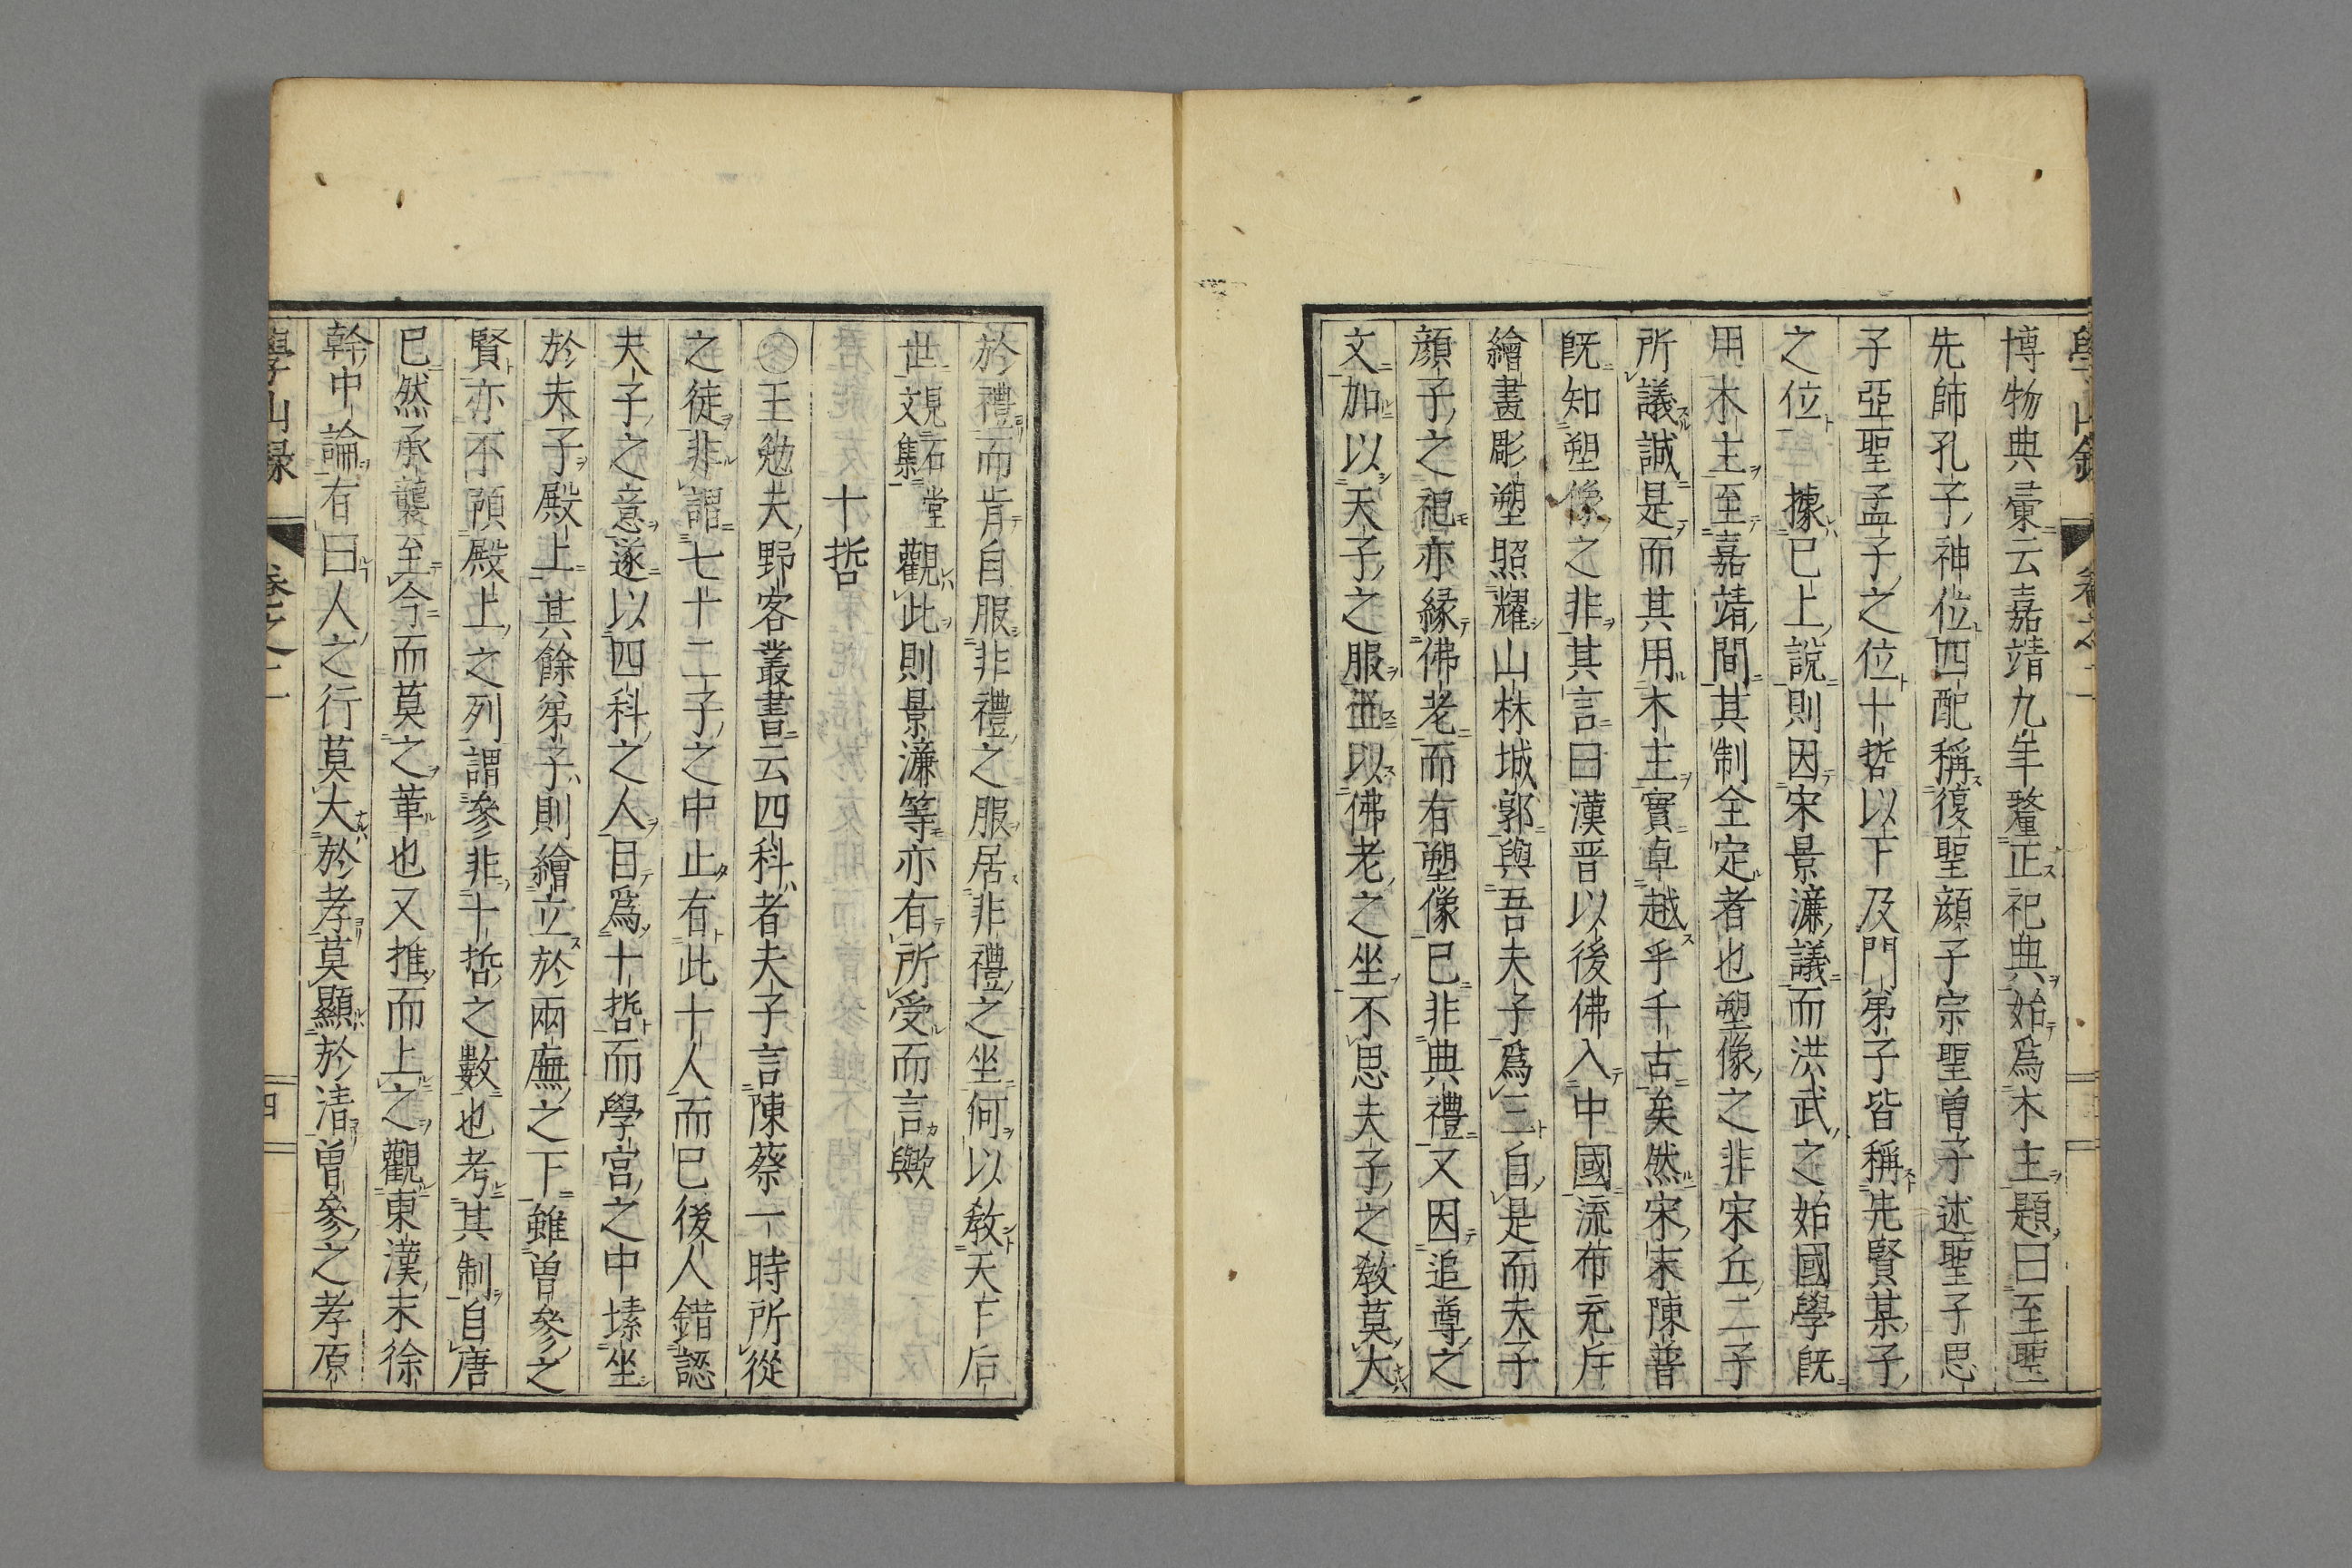 博物典彙云嘉靖九年釐正祀典始爲木主題曰至聖
先師孔子神位四配稱復聖顏子宗聖曾子述聖子思
子亞聖孟子之位十哲以下及門弟子皆稱先賢某子
之位據已上說則因宋景濂議而洪武之始國學既
用木主至嘉靖間其制全定者也塑像之非宋丘二子
所議誠是而其用木主實卓越乎千古矣然宋末陳普
既知塑像之非其言曰漢晋以後佛入中國流布充斥
繪畫彫塑照耀山林城郭與吾夫子爲三自是而夫子
顏子之祀亦緣佛老而有塑像已非典禮又因追尊之
文加以天子之服並以佛老之坐不思夫子之教莫大
於禮而肯自服非禮之服居非禮之坐何以教天下后
世見石堂文集觀此則景濂等亦有所受而言歟
十哲
〇王勉夫野客叢書云四科者夫子言陳蔡一時所從
之徒非謂七十二子之中止有此十人而已後人錯認
夫子之意遂以四科之人目爲十哲而學宮之中塐坐
於夫子殿上其餘弟子則繪立於兩廡之下雖曾參之
賢亦不預殿上之列謂參非十哲之數也考其制自唐
已然承襲至今而莫之革也又推而上之觀東漢末徐
幹中論有曰人之行莫大於孝莫顯於清曾參之孝原
學山錄 卷之二 四